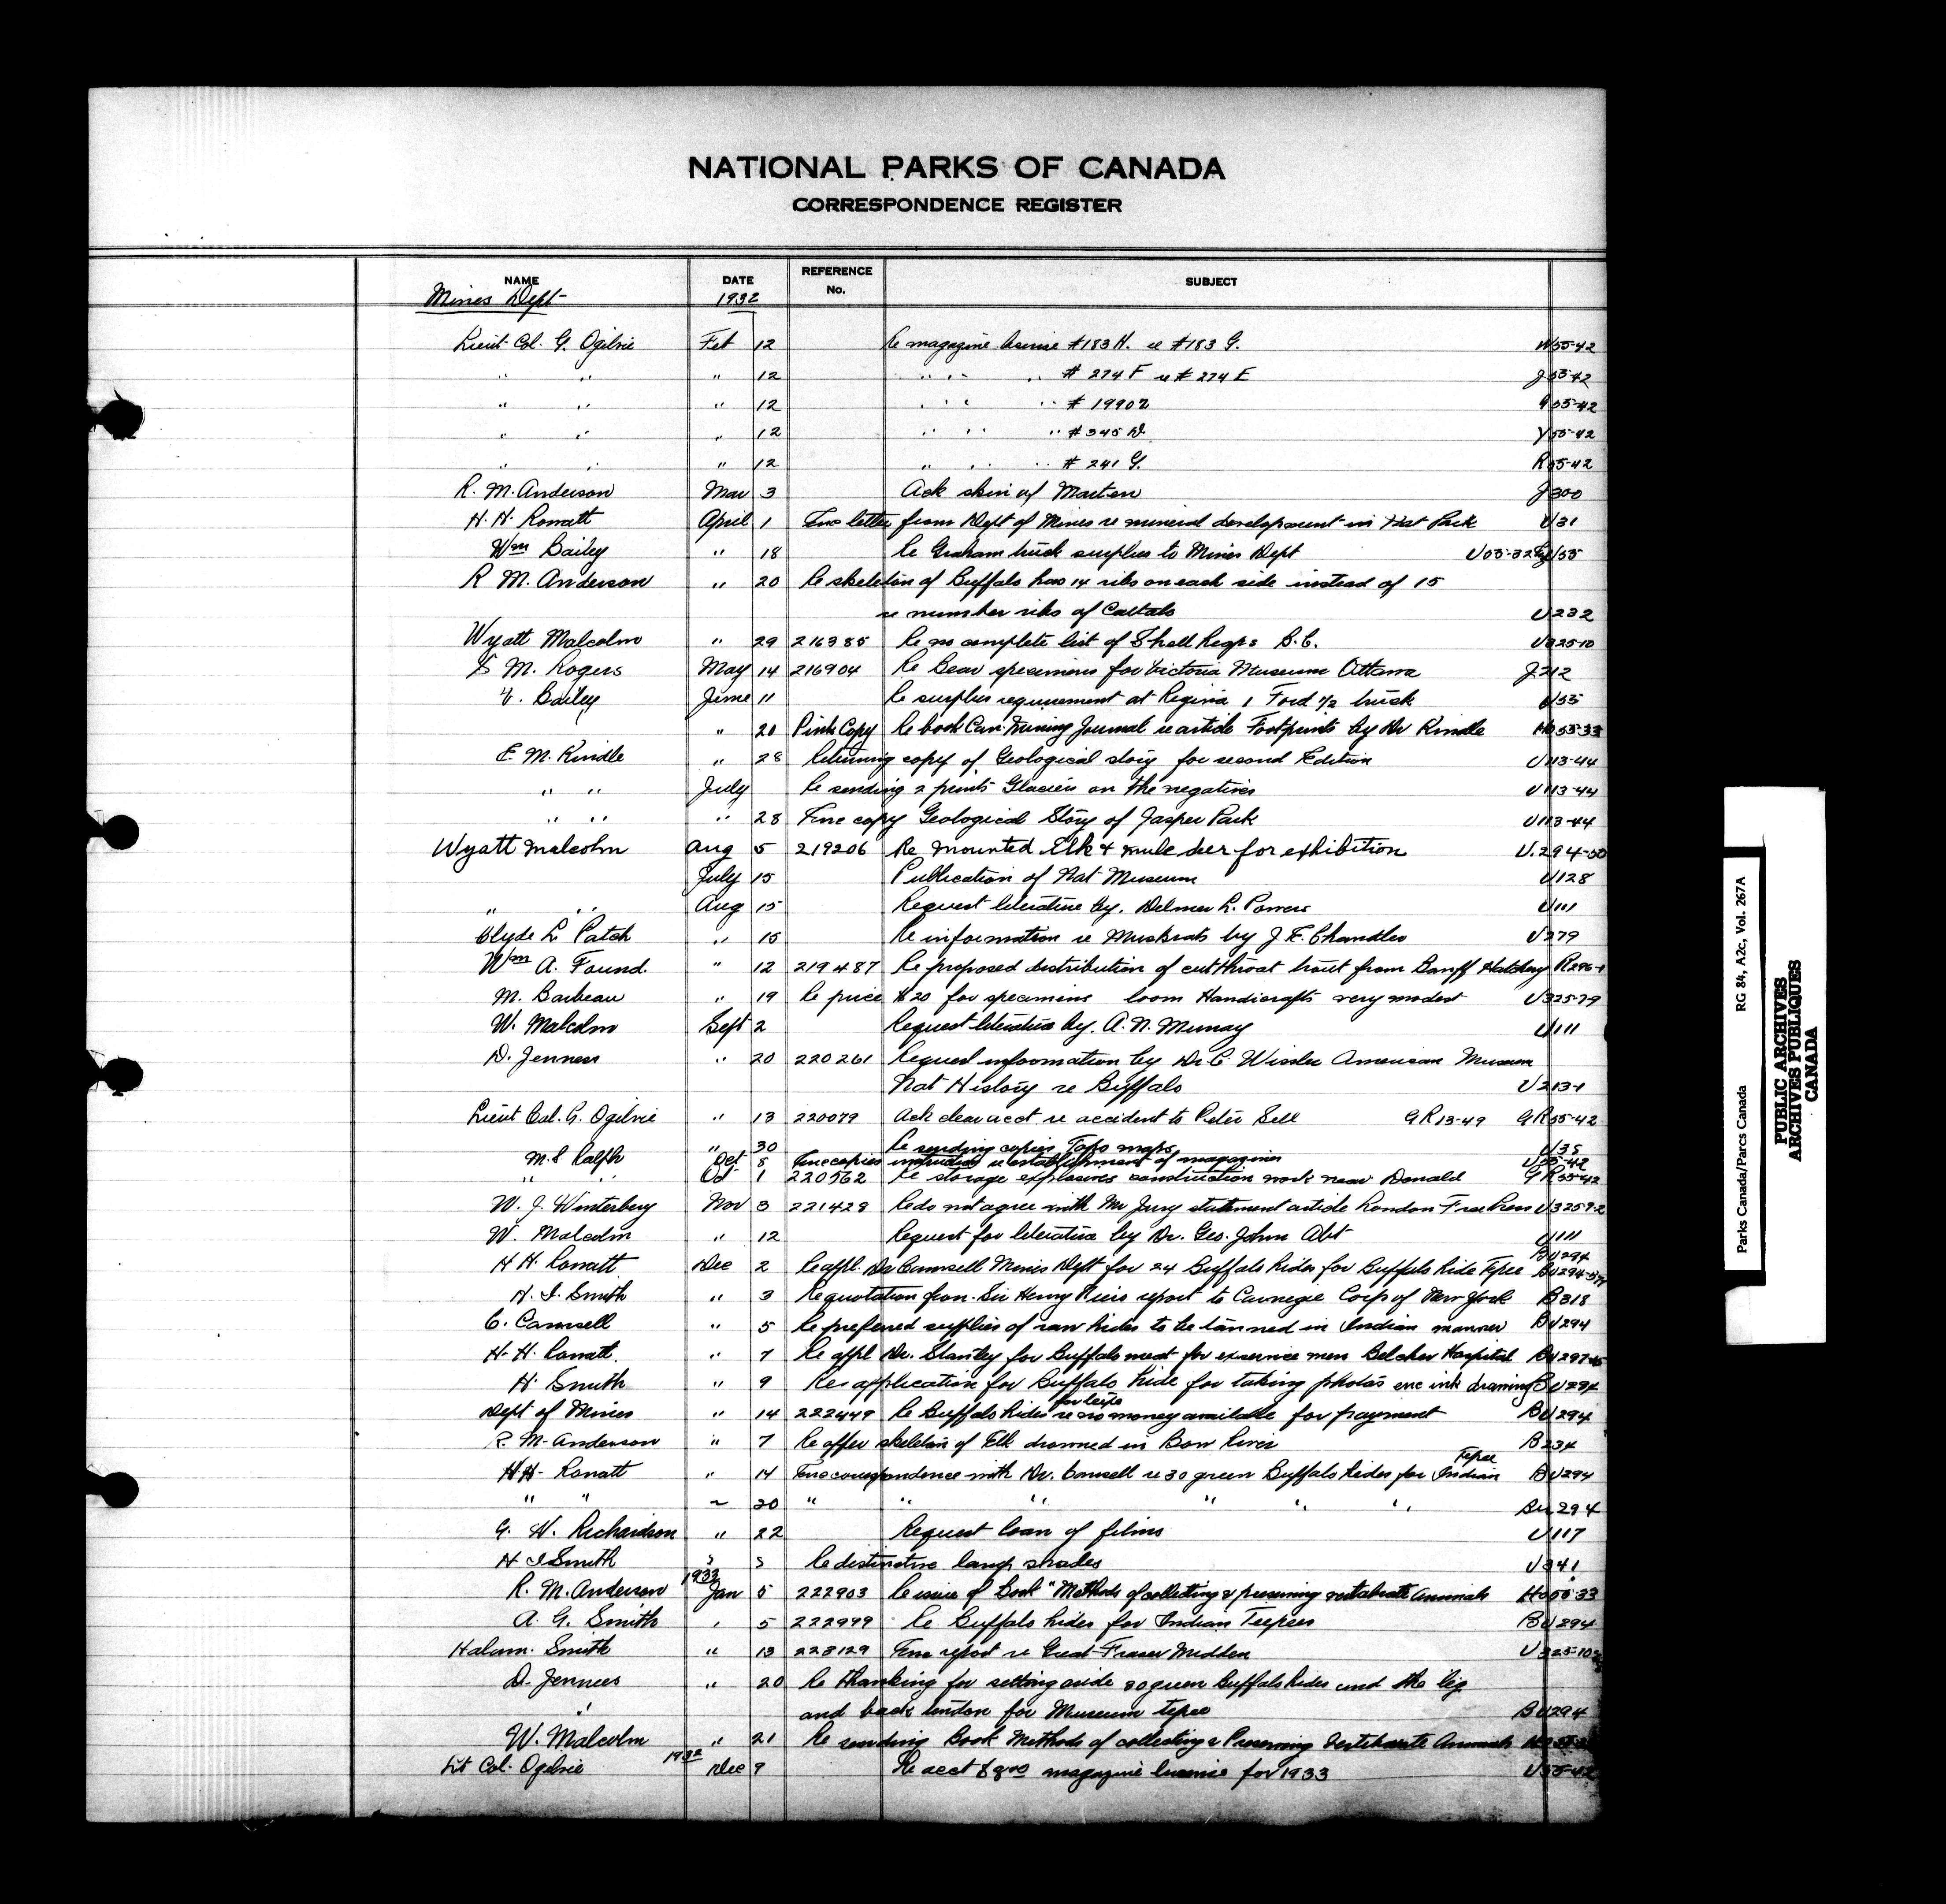 NATIONAL PARKS OF CANADA
CORRESPONDENCE REGISTER
NAME DATE REFERENCE No. SUBJECT
Mines Dept 1932
Lieut Col. G. Ogilvie Feb 12 Re magazine license #183 H. re #183 G. 55-42
" " " 12 " " " # 274 F re # 274 E J 55-42
" " " 12 " " " # 19902 55-42
" " " 12 " " " # 345 D. Y 55-42
" " " 12 " " " # 241 G. R 55-42
R. M. Anderson Mar 3 Ack skin of Marten J 300
H. H. Rowatt April 1 Enc letter from Dept of Mines re mineral development in Nat Park U 31
Wm Bailey " 18 Re Graham truck surplus to Mines Dept U 55-32
R M. Anderson " 20 Re skeleton of Buffalo has 14 ribs on each side instead of 15
re number ribs of Cattalo U 232
Wyatt Malcolm " 29 216385 Re no complete list of Shell Heaps B.C. U 325-10
S M. Rogers May 14 216904 Re Bear specimens for Victoria Museum Ottawa J 212
Bailey June 11 Re surplus requirement at Regina 1 Ford 1/2 truck U 55
" 20 Pink Copy Re book Can. Mining Journal re article Footprints by Dr Kindle HO 55-33
E. M. Kindle " 28 Returning copy of Geological story for second Edition U 113-44
" " July Re sending 2 prints Glaciers on the negatives U 113-44
" " " 28 Enc copy Geological Story of Jasper Park U 113-44
Wyatt Malcolm Aug 5 219206 Re mounted Elk & mule deer for exhibition U. 294-50
July 15 Publication of Nat Museum U 128
" " Aug 15 Request literature by. Delmer L. Powers U 111
Clyde L Patch " 15 Re information re Muskrats by J E. Chandler U 279
Wm A. Found. " 12 219487 Re proposed distribution of cutthroat trout from Banff Hatchery R 296-1
M. Barbeau " 19 Re price $20 for specimens loom Handicrafts very modest U 325-79
W. Malcolm Sept 2 Request literature by. A. N. Murray U 111
D. Jenness " 20 220261 Request information by Dr. C Wissler American Museum
Nat History re Buffalo U 213-1
Lieut Col. G. Ogilvie " 13 220079 Ack clear acct re accident to Peter Sell GR 13-49 GR 55-42
" 30 Re sending copies Topo maps U 35
M. S. Ralph Oct 8 Enc copies instruction re establishment of magazines U 55-42
" " Oct 1 220562 Re storage explosives construction work near Donald GR 55-42
W. J. Wintemberg Nov 3 221428 Re do not agree with Mr Jury statement article London Free Press U 325-9-2
W. Malcolm " 12 Request for literature by Dr. Geo. John Abt U 111
BU 294
H H. Rowatt Dec 2 Re appl. Dr Camsell Mines Dept for 24 Buffalo hides for Buffalo hide Tepee BU 294-
H. I. Smith " 3 Re quotation from Sir Henry Miers report to Carnegie Corp of New York B 318
C. Camsell " 5 Re preferred supplies of raw hides to be tanned in Indian manner BU 294
H. H. Rowatt. " 7 Re appl Dr. Stanley for Buffalo meat for exservice men Belcher Hospital BU 297-45
H. Smith " 9 Re application for Buffalo hide for taking photos enc ink drawing BU 294
for tepee
Dept of Mines " 14 222449 Re Buffalo hides re no money available for payment BU 294
R. M. Anderson " 7 Re offer skeleton of Elk drowned in Bow River B 234
Tepee
H H. Rowatt " 14 Enc correspondence with Dr. Camsell re 30 green Buffalo hides for Indian BU 294
" " 20 " " " " " " BU 294
G. H. Richardson " 22 Request loan of films U 117
H I Smith Re distinctive lamp shades U 341
1933
R. M. Anderson Jan 5 222903 Re issue of Book "Methods of collecting & preserving vertebrate Animals HO 55-33
A. G. Smith " 5 222999 Re Buffalo hides for Indian Teepees BU 294
Harlan. Smith " 13 223129 Enc report re Great Fraser Midden U 325-10
D. Jenness " 20 Re thanking for setting aside 30 green Buffalo hides and the leg
" and back tendon for Museum tepee BU 294
W. Malcolm " 21 Re sending Book Methods of collecting & Preserving Vertebrate Animals
Lt Col. Ogilvie 1932 Dec 9 Re acct $8.00 magazine license for 1933 U 55-42
Parks Canada/Parcs Canada RG 84, A2c, Vol. 267A
PUBLIC ARCHIVES
ARCHIVES PUBLIQUES
CANADA